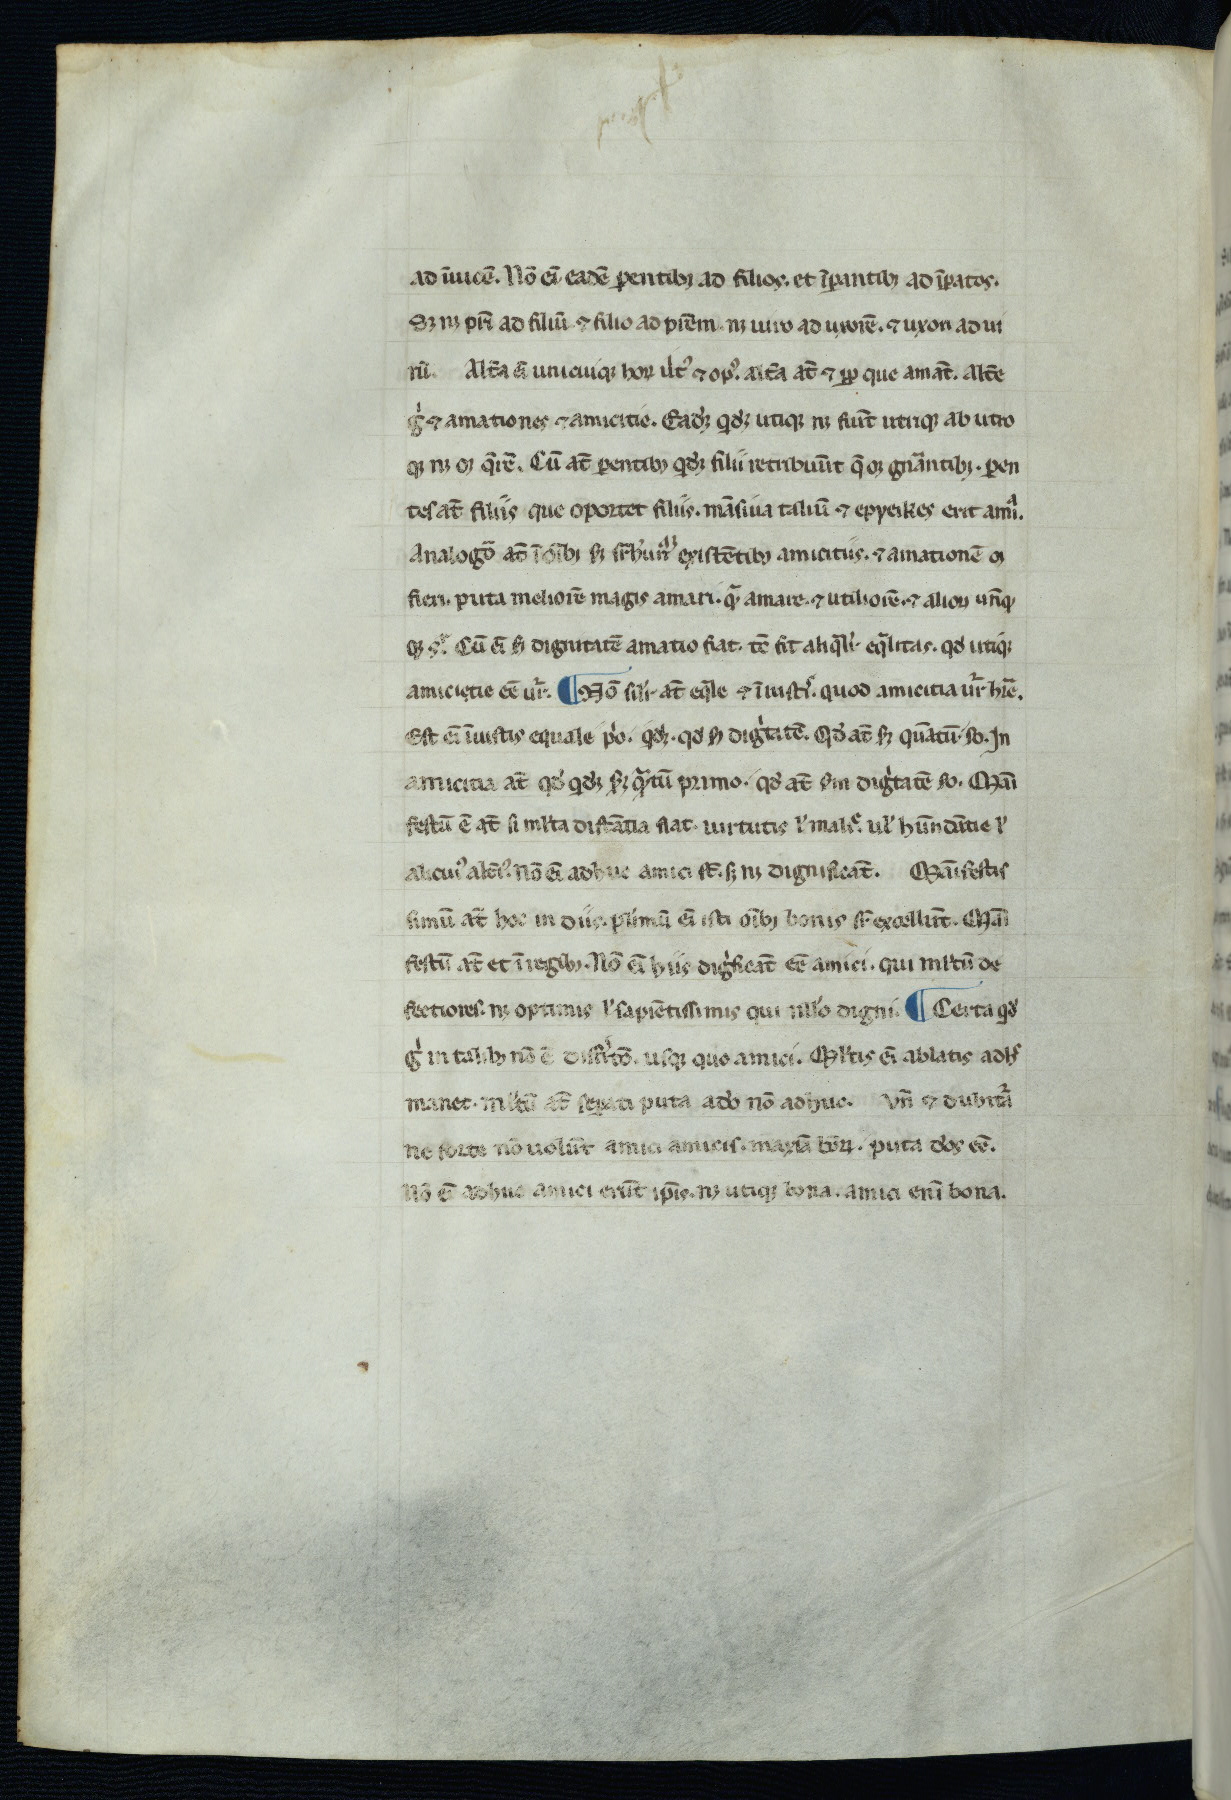 ad īuicē. Nō eī eadē ꝑentibꝫ ad filios. et īꝑantibꝫ ad īꝑatos.
Sꝫ nꝫ pr̄i ad filiū ⁊ filio ad pr̄em. nꝫ uiro ad uxorē. ⁊ uxori ad ui
rū. Alt̄a eī unicuiqꝫ hoꝝ ut᷒ ⁊ op᷒. alt̄a at̄ ⁊ ꝓp que amāt. Alt̄e
gͥ ⁊ amationes ⁊ amicitie. Eadꝫ qdꝫ utiqꝫ nꝫ fiūt utriqꝫ ab utro
qꝫ nꝫ oꝫ q̄rē. Cū at̄ ꝑentibꝫ qdꝫ filii retribuūt q̄ oꝫ gn̄antibꝫ. ꝑen
tes at̄ filiis que oportet filiis. māsiua taliū ⁊ epyeikes erit amͥ.
Analogō at̄ ī oībꝫ existētibꝫ amicitiis. ⁊ amationē oꝫ
fieri. puta meliorē magis amari. qͣ amare. ⁊ utiliorē. ⁊ alioꝝ unqͥ
qꝫ Cū eī dignitatē amatio fiat. tē fit aliqͣlr eqͣlitas. qd utiqꝫ
amicitie eē ur̄. ¶ Nō silr at̄ eqͣle ⁊ ī iustis. quod amicitia ur̄ hr̄e.
Est eī ī iustis equale pͥo. qdꝫ. qd digͥtatē. Qd at̄ quātū. so. In
amicitia at̄ qd qdꝫ qͣtū primo. qd at̄ digͥtatē so. Māi
festū ē at̄ si ml̄ta distātia fiat. uirtutis l' malic. ul' hūndātie l'
alicui᷒ alt̄i᷒. Nō eī adhuc amici st̄. sꝫ nꝫ dignificāt. Māifestis
simū at̄ hoc in diis. plimū eī isti oībꝫ bonis excellūt. Māi
festū at̄ et ī regibꝫ. Nō eī hiis digͥficāt eē amici. qui ml̄tū de
fectiores. nꝫ optimis l' sapiētissimis qui nll'o digni. ¶ Certa qd
gͥ in talibꝫ nō ē usqꝫ quo amici. Ml̄tis eī ablatis adh᷒
manet. ml̄tū at̄ seꝑati puta a do nō adhuc. Vn̄ ⁊ dubitā
ne forte nō uolūt amici amicis. maxīa boꝝ. puta dos eē.
Nō ē adhuc amici erūt ip̄is. nꝫ utiqꝫ bona. amici enī bona.